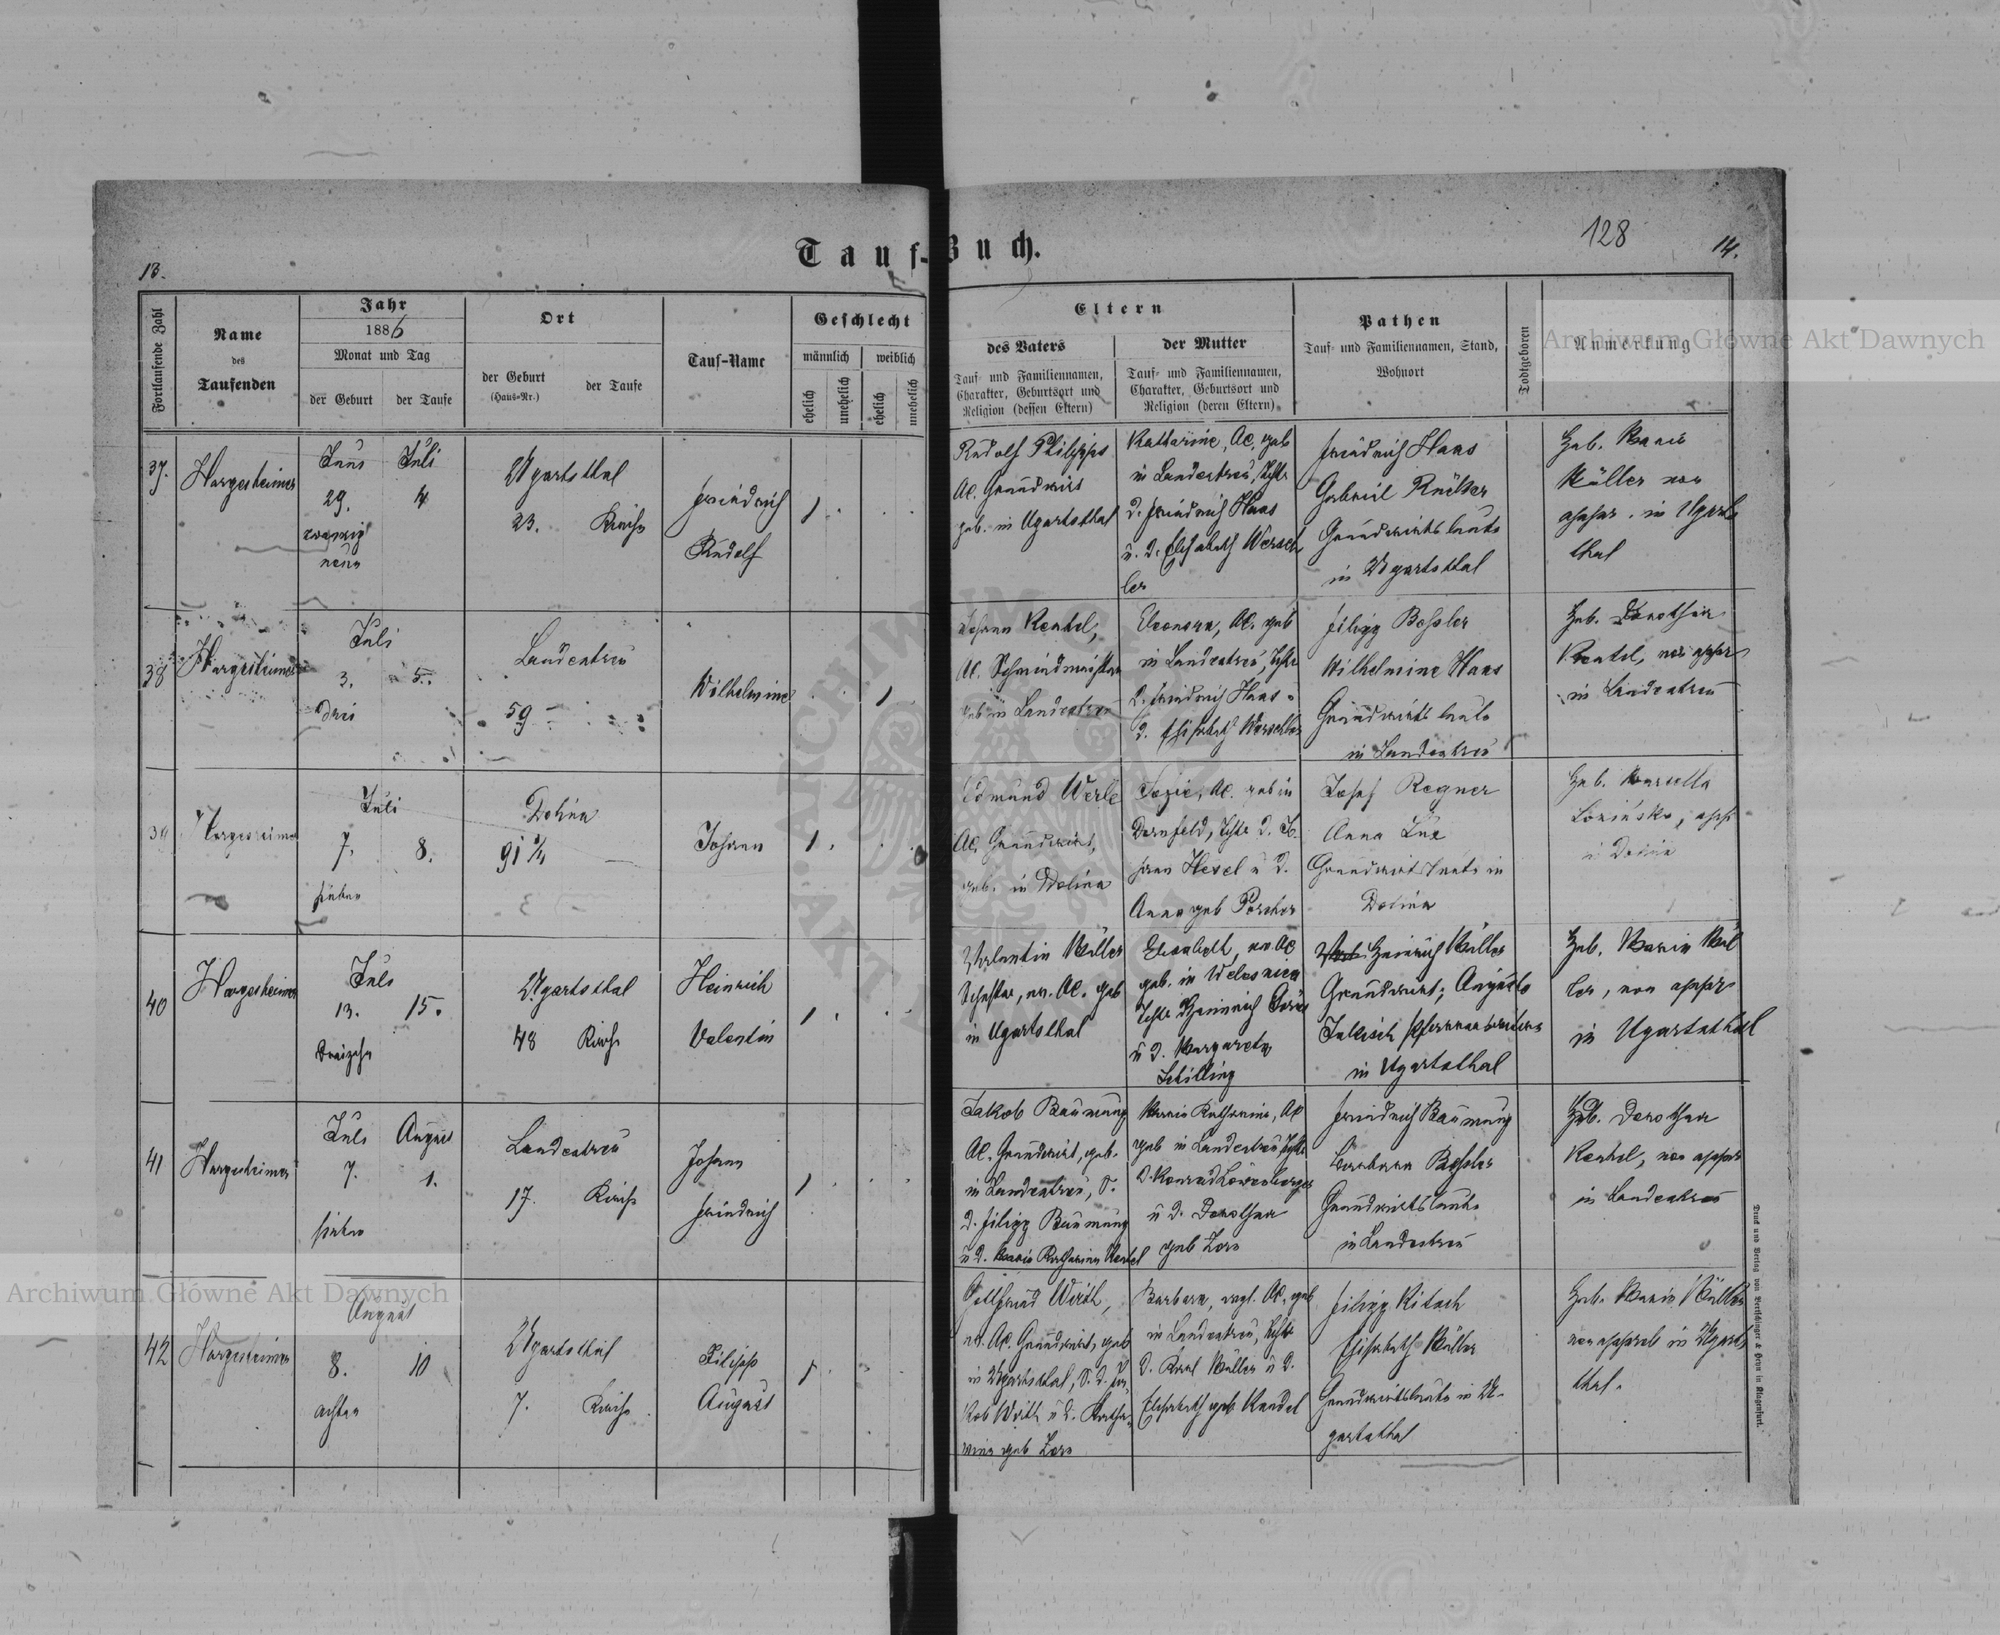 128
13.
14.
Tauf-Buch.
Fortlaufende Zahl
Name
des
Taufenden
Jahr
1886
Monat und Tag
der Geburt
der Taufe
Ort
der Geburt
(Haus-Nr.)
der Taufe
Tauf-Name
Geschlecht
männlich
weiblich
ehelich
unehelich
ehelich
unehelich
Eltern
des Vaters
Tauf- und Familiennamen,
Charakter, Geburtsort und
Religion (dessen Eltern)
der Mutter
Tauf- und Familiennamen,
Charakter, Geburtsort und
Religion (deren Eltern)
Pathen
Tauf- und Familiennamen, Stand,
Wohnort
Todtgeboren
Anmerkung
37.
Hargesheimer
Juni
29.
zwanzig
neun
Juli
4
Ugartsthal
23.
Kirche
Friedrich
Rudolf
1
Rudolf Philipps
AC. Grundwirt
geb. in Ugartsthal
Katharine, AC. geb
in Landestreu, Tchtr
d. Friedrich Haas
u. d. Elisabeth Wersch
ler
Friedrich Haas
Gabriel
Grundwirtsleute
in Ugartsthal
Heb. Marie
Müller non
appr. in Ugarts
thal
38
Hargesheimer
Juli
3.
drei
5.
Landestreu
59
Wilhelmine
1
Johann Kentel,
AC. Schmiedmeister
geb in Landestreu
Eleonora, AC. geb
in Landestreu, Tchtr
d. Friedrich Haas u
d. Elisabeth Werschler
Filipp Beßler
Wilhelmine Haas
Grundwirtsleute
in Landestreu
Heb. Dorothea
Kentel, non appr
in Landestreu
39
Hargesheimer
Juli
7.
sieben
8.
Dolina
91 1/4
Johann
1
Edmund Werle
AC. Grundwirt,
geb. in Dolina
AC. geb in
Dornfeld, Tchtr d. Jo
hann Hesel u d.
Anna geb Porcher
Josef Regner
Anna Lux
Grundwirtsleute in
Dolina
Heb.
appr
in Dolina
40
Hargesheimer
Juli
13.
dreizehn
15.
Ugartsthal
48
Kirche
Heinrich
Valentin
1
Valentin Müller
Schuster, ev. AC. geb
in Ugartsthal
Elisabeth, ev. AC
geb. in
Tchtr Heinrich
u d. Margareta
Schilling
Heinrich Müller
Grundwirt; Auguste
in Ugartsthal
Heb. Marie Mül
ler, non appr
in Ugartsthal
41
Hargesheimer
Juli
7.
sieben
August
1.
Landestreu
17.
Kirche
Johann
Friedrich
1
Jakob Baumung
AC. Grundwirt, geb.
in Landestreu, S.
d. Filipp Baumung
u d. Marie Katharina Kentel
Marie Katharine, AC
geb in Landestreu Tchtr
d. Konrad Löwenberger
u d. Dorothea
geb Zorn
Friedrich Baumung
Barbara Beßler
Grundwirtsleute
in Landestreu
Heb. Dorothea
Kentel, non appr
in Landestreu
42
Hargesheimer
August
8.
achten
10
Ugartsthal
7.
Kirche
Filipp
August
1
Gottfried Wirth,
ev. AC. Grundwirt, geb
in Ugartsthal, S. d. Ja-
kob Wirth u d. Katha-
rina geb Zorn
Barbara, evgl. AC, geb
in Landestreu, Tchtr
d. Karl Müller u d.
Elisabeth geb Kendel
Filipp
Elisabeth Müller
Grundwirtsleute in U-
gartsthal
Heb. Marie Müller
non approb in Ugarts
thal.
Druck und Verlag von Bertschinger & Heyn in Klagenfurt.
Archiwum Główne Akt Dawnych
Archiwum Główne Akt Dawnych